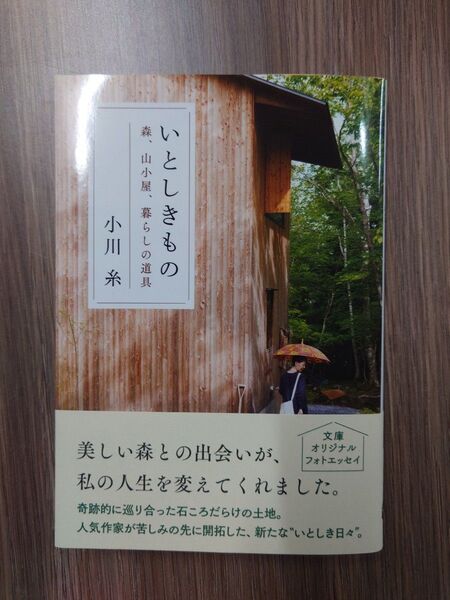 いとしきもの
森、山小屋、暮らしの道具
小川 糸
文庫
オリジナル
フォトエッセイ
美しい森との出会いが、
私の人生を変えてくれました。
奇跡的に巡り合った石ころだらけの土地。
人気作家が苦しみの先に開拓した、新たな“いとしき日々”。